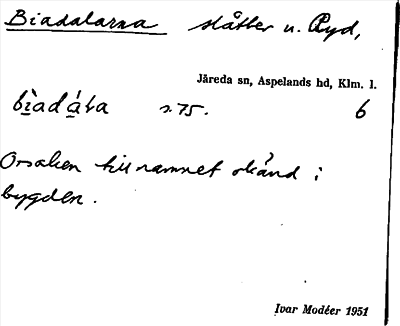 Biadalarna slåtter u. Ryd,
Järeda sn, Aspelands hd, Klm. l.
bìadáḷa s. 75. 6
Orsaken till namnet okänd i
bygden.
Ivar Modéer 1951